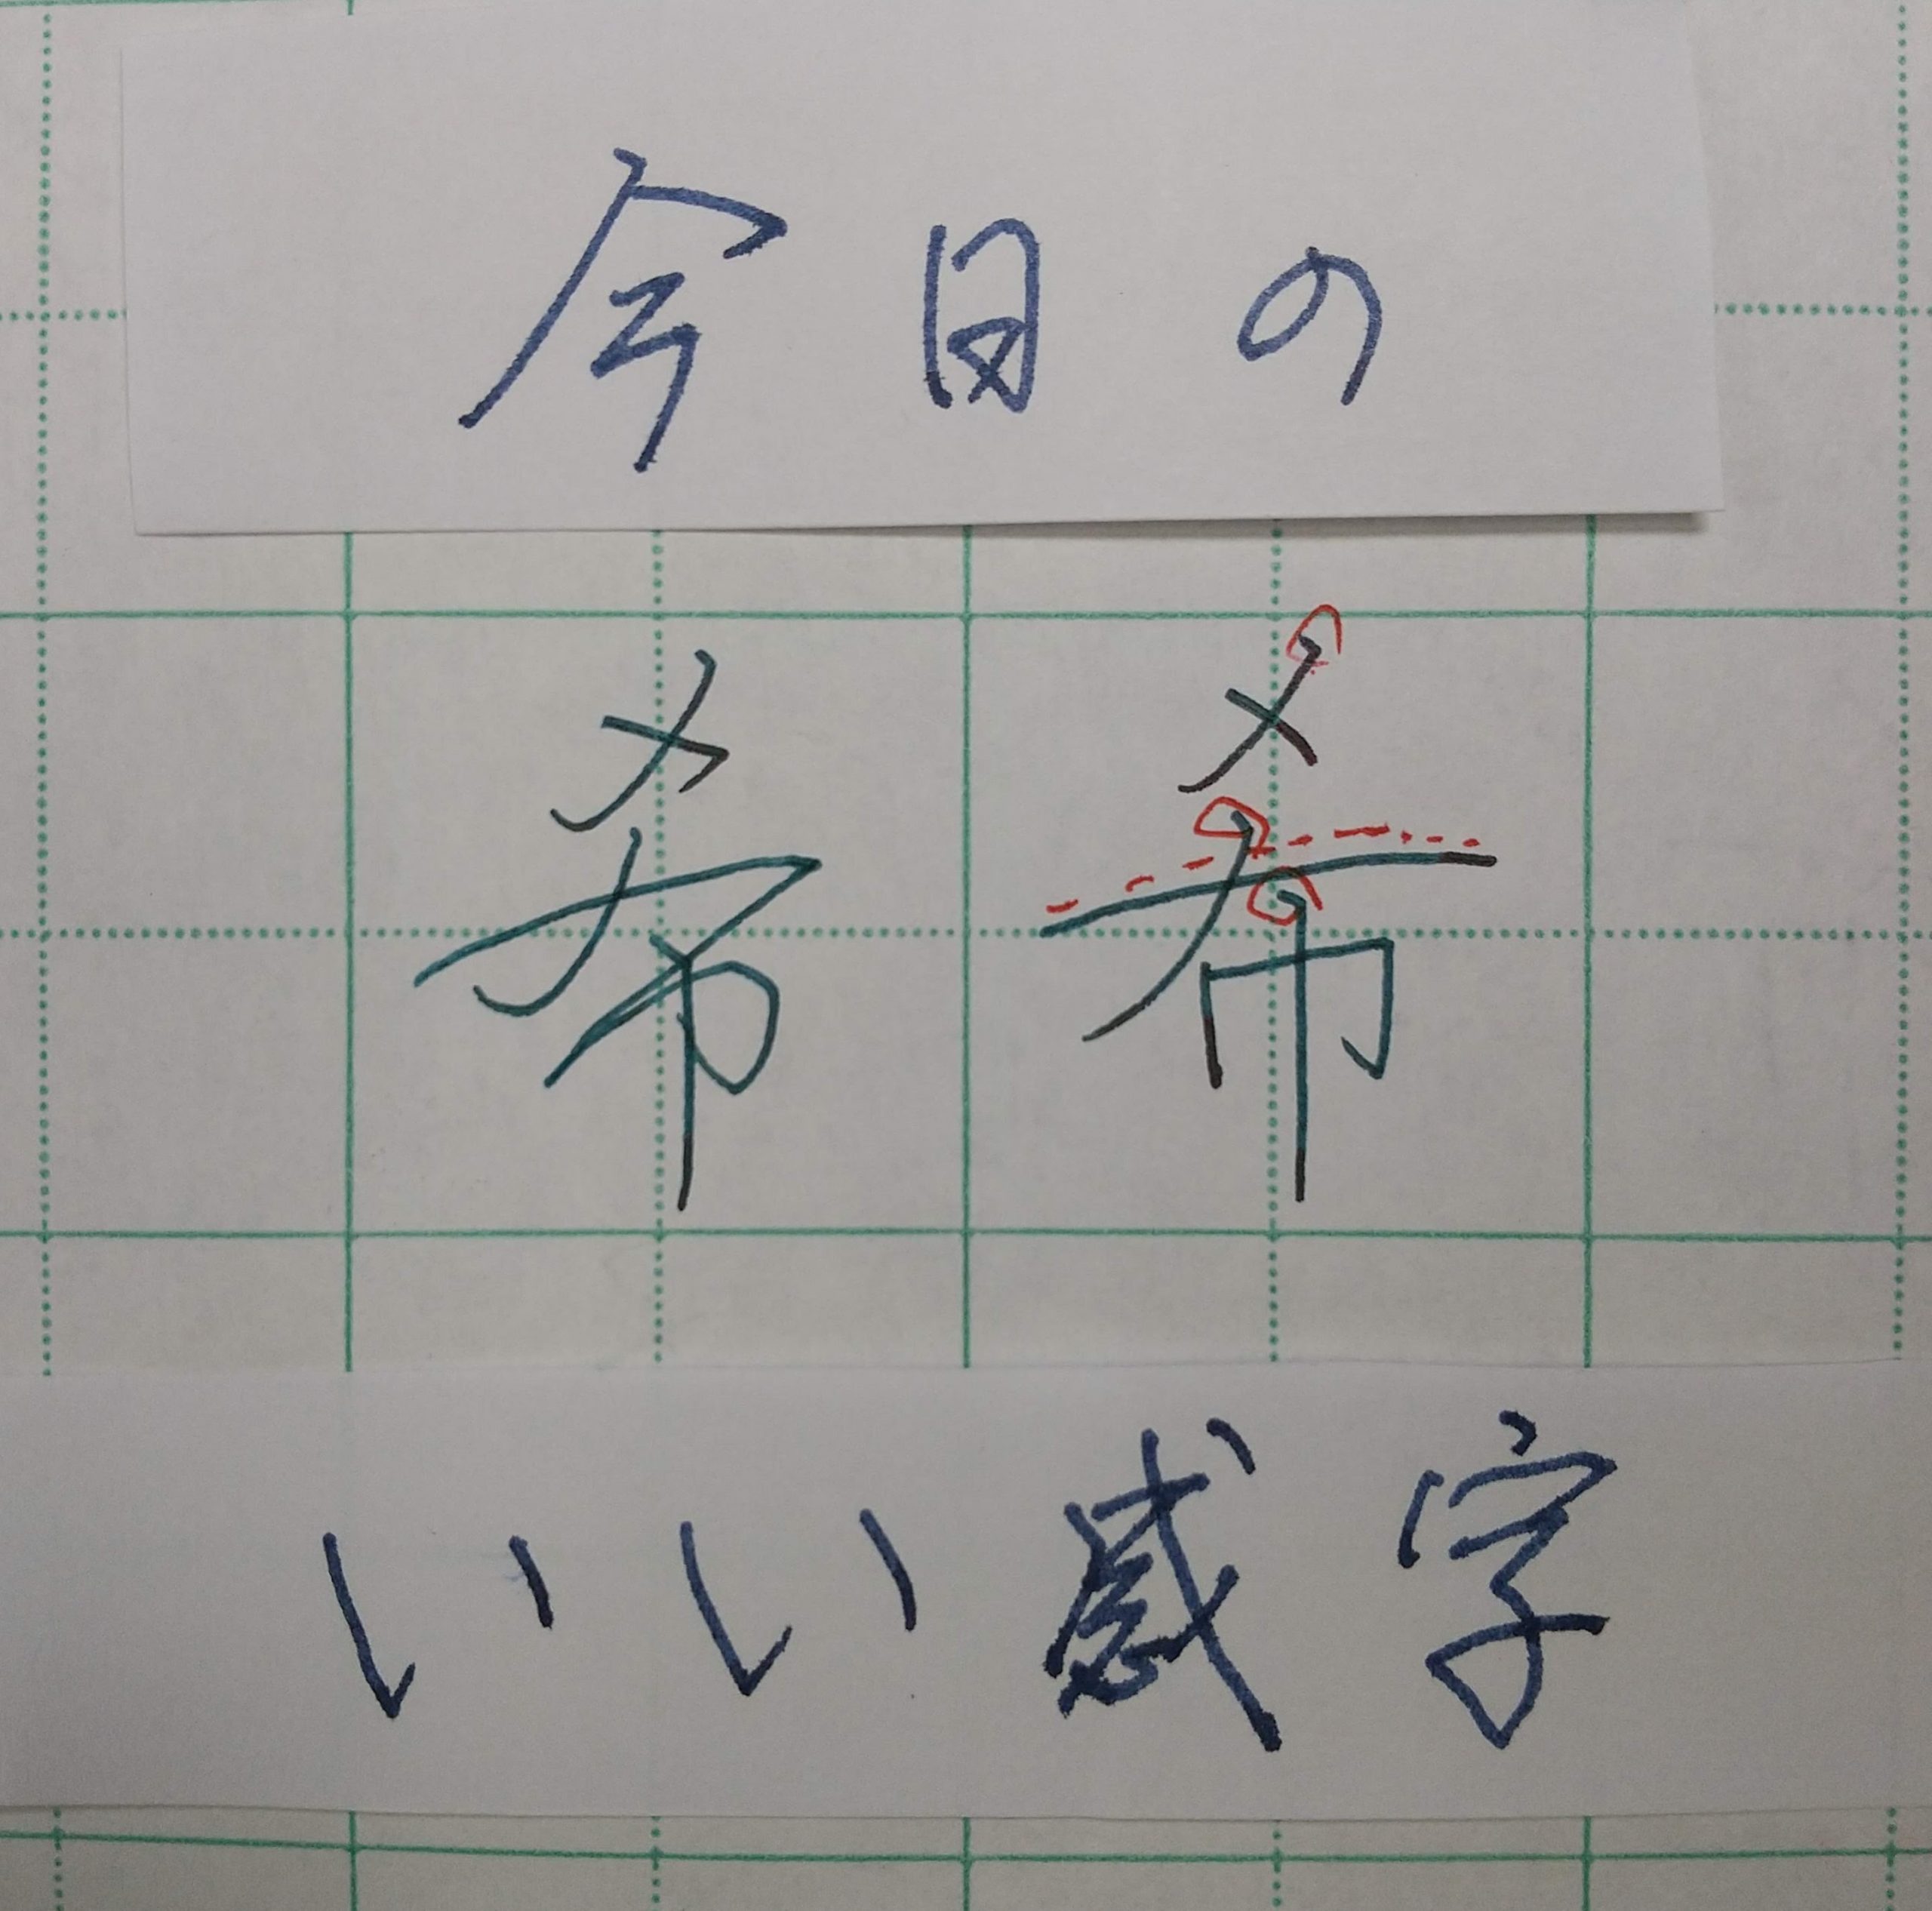 今日の
希 希
いい感字